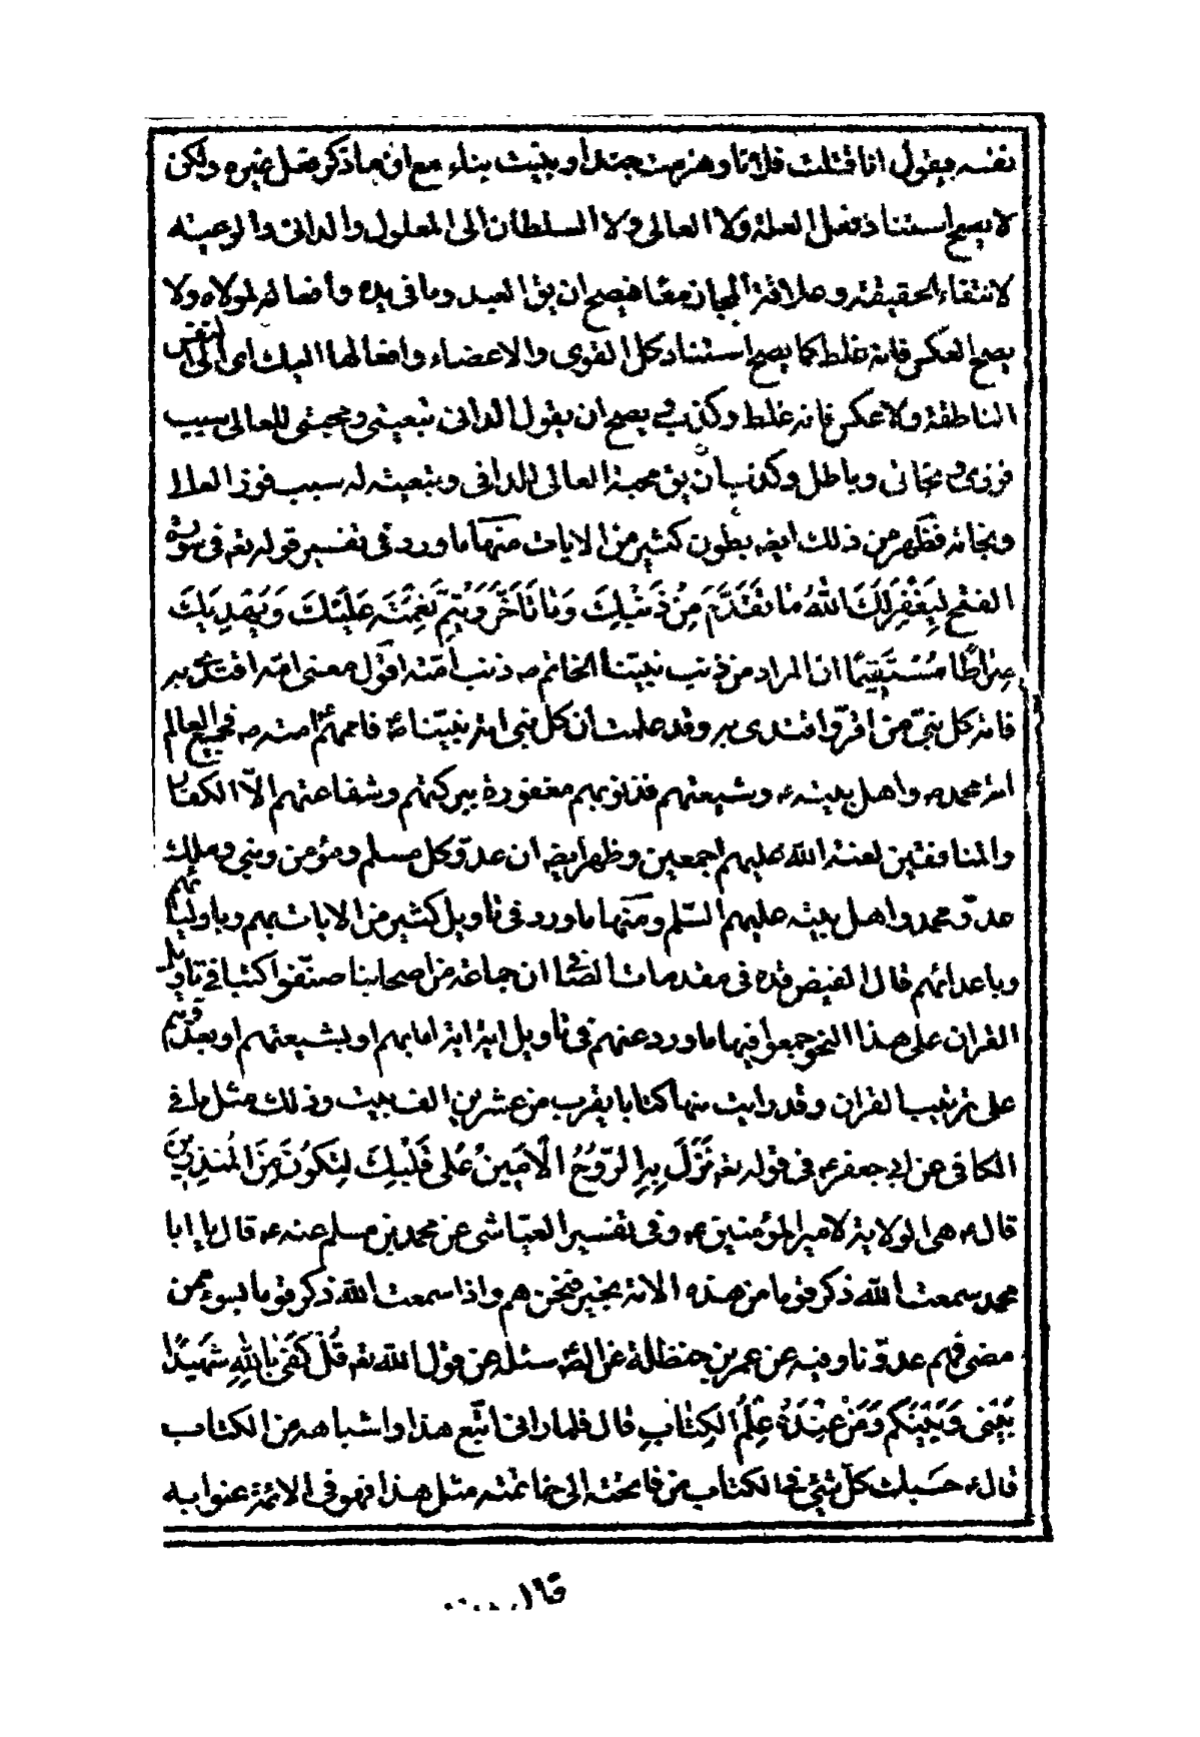 نفسه فيقول انا قتلت فلانا وهزمت جندا وبنيت بناء مع ان ما ذكر فعل غيره ولكن
لا يصح استناد فعل العلة ولا العالى ولا السلطان الى المعلول والدانى والرعيته
لانتفاء الحقيقته وعلاقة المجاز معا فيصح ان يق العبد وما فى يده وأفعاله لمولاه ولا
يصح العكس فانه غلط كما يصح استناد كل القوى والاعضاء وافعالها اليك اى الى النفس
الناطقة ولا عكس فانه غلط وكذب فيصح ان يقول الدانى تبعيتى ومحبتى للعالى سبب
فوزى ونجاتى وباطل وكذب بان يق محبة العالى للدانى وتبعيته له سبب فوز العلا
ونجاته فظهر من ذلك ايضه بطون كثير من الايات منها ما ورد فى تفسير قوله تعه فى سورة
الفتح لِيَغْفِرَ لَكَ اللهُ مَا تَقَدَّمَ مِنْ ذَنْبِكَ وَمَا تَأَخَّرَ وَيُتِمَّ نِعْمَتَهُ عَلَيْكَ وَيَهْدِيَكَ
صِرَاطًا مُسْتَقِيمًا ان المراد من ذنب نبيّنا الخاتم ص ذنب امّته اقول معنى امّه اقتدى به
فامة كل نبىّ من اقرّ واقتدى به وقد علمت أن كل نبى امة نبيّنا ص فاممهم امته ص فجميع العالم
امة محمد ص واهل بيته ع وشيعتهم فذنوبهم مغفورة ببركتهم وشفاعتهم الاّ الكفار
والمنافقين لعنة الله عليهم اجمعين وظهر ايضه ان عدوّ كل مسلم ومؤمن ونبى وملك
عدوّ محمد واهل بيته عليهم السّلم ومنها ما ورد فى تاويل كثير من الايات بهم وباوليائهم
وباعدائهم قال الفيض قده فى مقدمات الصّافى ان جماعة من اصحابنا صنّفوا كتبا فى تاويل
القران على هذا النحو جمعوا فيها ما ورد عنهم فى تاويل اية اية اما بهم او بشيعتهم او بعدوّهم
على ترتيب القران وقد رايت منها كتابا يقرب من عشرين الف بيت وذلك مثل ما فى
الكافى عن ابى جعفر ع فى قوله تعه نَزَلَ بِهِ الرّوُحُ الْأَمِينُ عَلى قَلْبِكَ لِتَكُونَ مِنَ الْمُنذِرِينَ
قال ع هى الولاية لامير المؤمنين ع وفى تفسير العيّاشى عن محمد بن مسلم عنه ع قال يا ابا
محمد سمعت الله ذكر قوما من هذه الامة بخير فنحن هم واذا سمعت الله ذكر قوما بسوء ممن
مضى فهم عدوّنا وفيه عن عمر بن حنظلة عن الصّ سئل عن قول الله تعه قُلْ كَفَى بِاللهِ شَهِيدًا
بَيْنِى وَبَيْنَكُم وَمَنْ عِنْدَهُ عِلْمُ الْكِتَابِ قال فلما رانى اتّبع هذا واشباهه من الكتاب
قال ع حسبك كلّ شئ فى الكتاب من فاتحته الى خاتمته مثل هذا فهو فى الائمة عنوا به